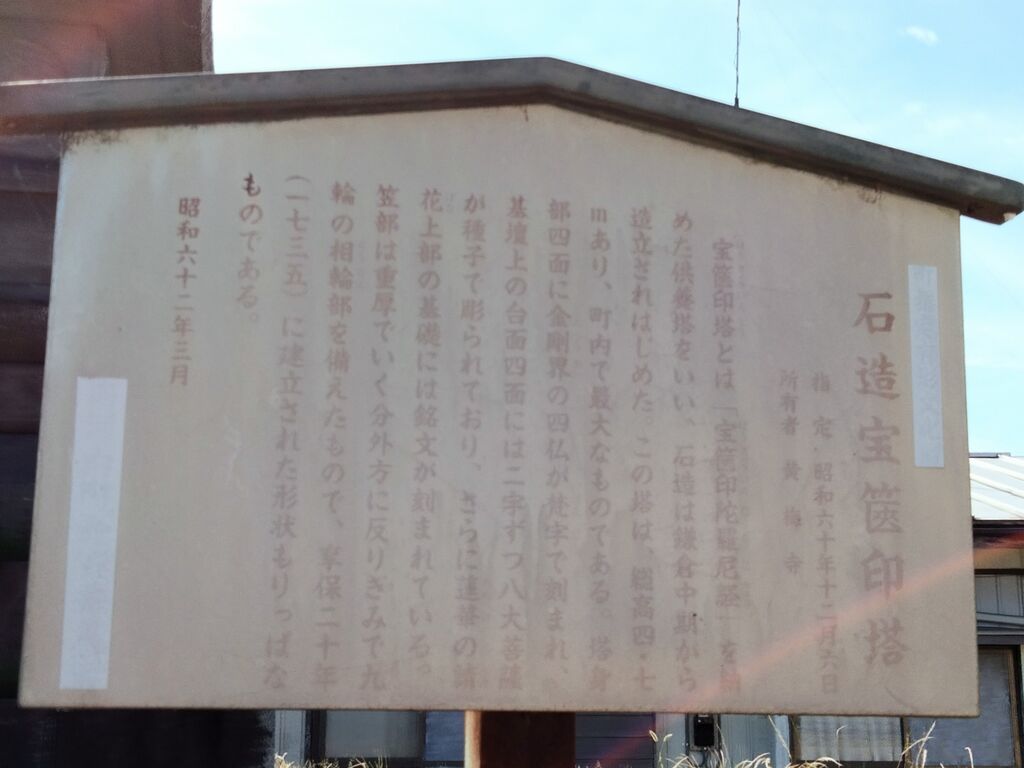 石造宝篋印塔
指定 昭和六十年十二月六日
所有者 黄梅寺
宝篋印塔とは「宝篋印陀羅尼経」を納
めた供養塔をいい、石造は鎌倉中期から
造立されはじめた。この塔は、総高四・七
mあり、町内で最大なものである。塔身
部四面に金剛界の四仏が梵字で刻まれ、
基壇上の台面四面には二字ずつ八大菩薩
が種子で彫られており、さらに蓮華の請
花上部の基礎には銘文が刻まれている。
笠部は重厚でいく分外方に反りぎみで九
輪の相輪部を備えたもので、享保二十年
(一七三五)に建立された形状もりっぱな
ものである。
昭和六十二年三月